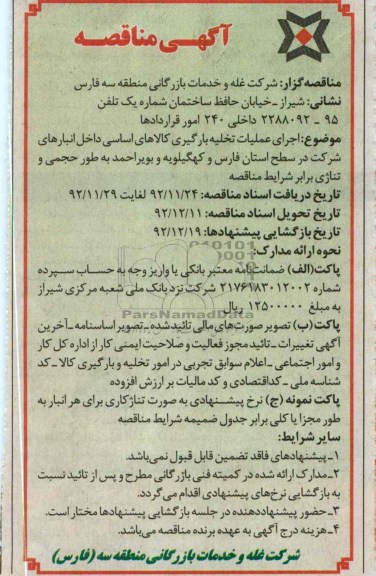 آگهی مناقصه
مناقصه‌گزار: شرکت غله و خدمات بازرگانی منطقه سه فارس
نشانی: شیراز ـ خیابان حافظ ساختمان شماره یک تلفن
۹۵ ـ ۲۲۸۸۰۹۲ داخلی ۲۴۰ امور قراردادها
موضوع: اجرای عملیات تخلیه بارگیری کالاهای اساسی داخل انبارهای
شرکت در سطح استان فارس و کهگیلویه و بویراحمد به طور حجمی و
تناژی برابر شرایط مناقصه
تاریخ دریافت اسناد مناقصه: ۹۲/۱۱/۲۴ لغایت ۹۲/۱۱/۲۹
تاریخ تحویل اسناد مناقصه: ۹۲/۱۲/۱۱
تاریخ بازگشایی پیشنهادها: ۹۲/۱۲/۱۹
نحوه ارائه مدارک:
پاکت (الف) ضمانتنامه معتبر بانکی یا واریز وجه به حساب سپرده
شماره ۲۱۷۶۱۸۳۰۱۲۰۰۲ شرکت نزد بانک ملی شعبه مرکزی شیراز
به مبلغ ۱۲۵۰۰۰۰۰ ریال
پاکت (ب) تصویر صورت‌های مالی تائید شده ـ تصویر اساسنامه ـ آخرین
آگهی تغییرات ـ تائید مجوز فعالیت و صلاحیت ایمنی کار از اداره کل کار
و امور اجتماعی ـ اعلام سوابق تجربی در امور تخلیه و بارگیری کالا ـ کد
شناسه ملی ـ کد اقتصادی و کد مالیات بر ارزش افزوده
پاکت نمونه (ج) نرخ پیشنهادی به صورت تناژ کاری برای هر انبار به
طور مجزا یا کلی برابر جدول ضمیمه شرایط مناقصه
سایر شرایط:
۱ـ پیشنهادهای فاقد تضمین قابل قبول نمی‌باشد.
۲ـ مدارک ارائه شده در کمیته فنی بازرگانی مطرح و پس از تائید نسبت
به بازگشایی نرخ‌های پیشنهادی اقدام می‌گردد.
۳ـ حضور پیشنهاددهنده در جلسه بازگشایی پیشنهادها مختار است.
۴ـ هزینه درج آگهی به عهده برنده مناقصه می‌باشد.
شرکت غله و خدمات بازرگانی منطقه سه (فارس)
ParsNamadData